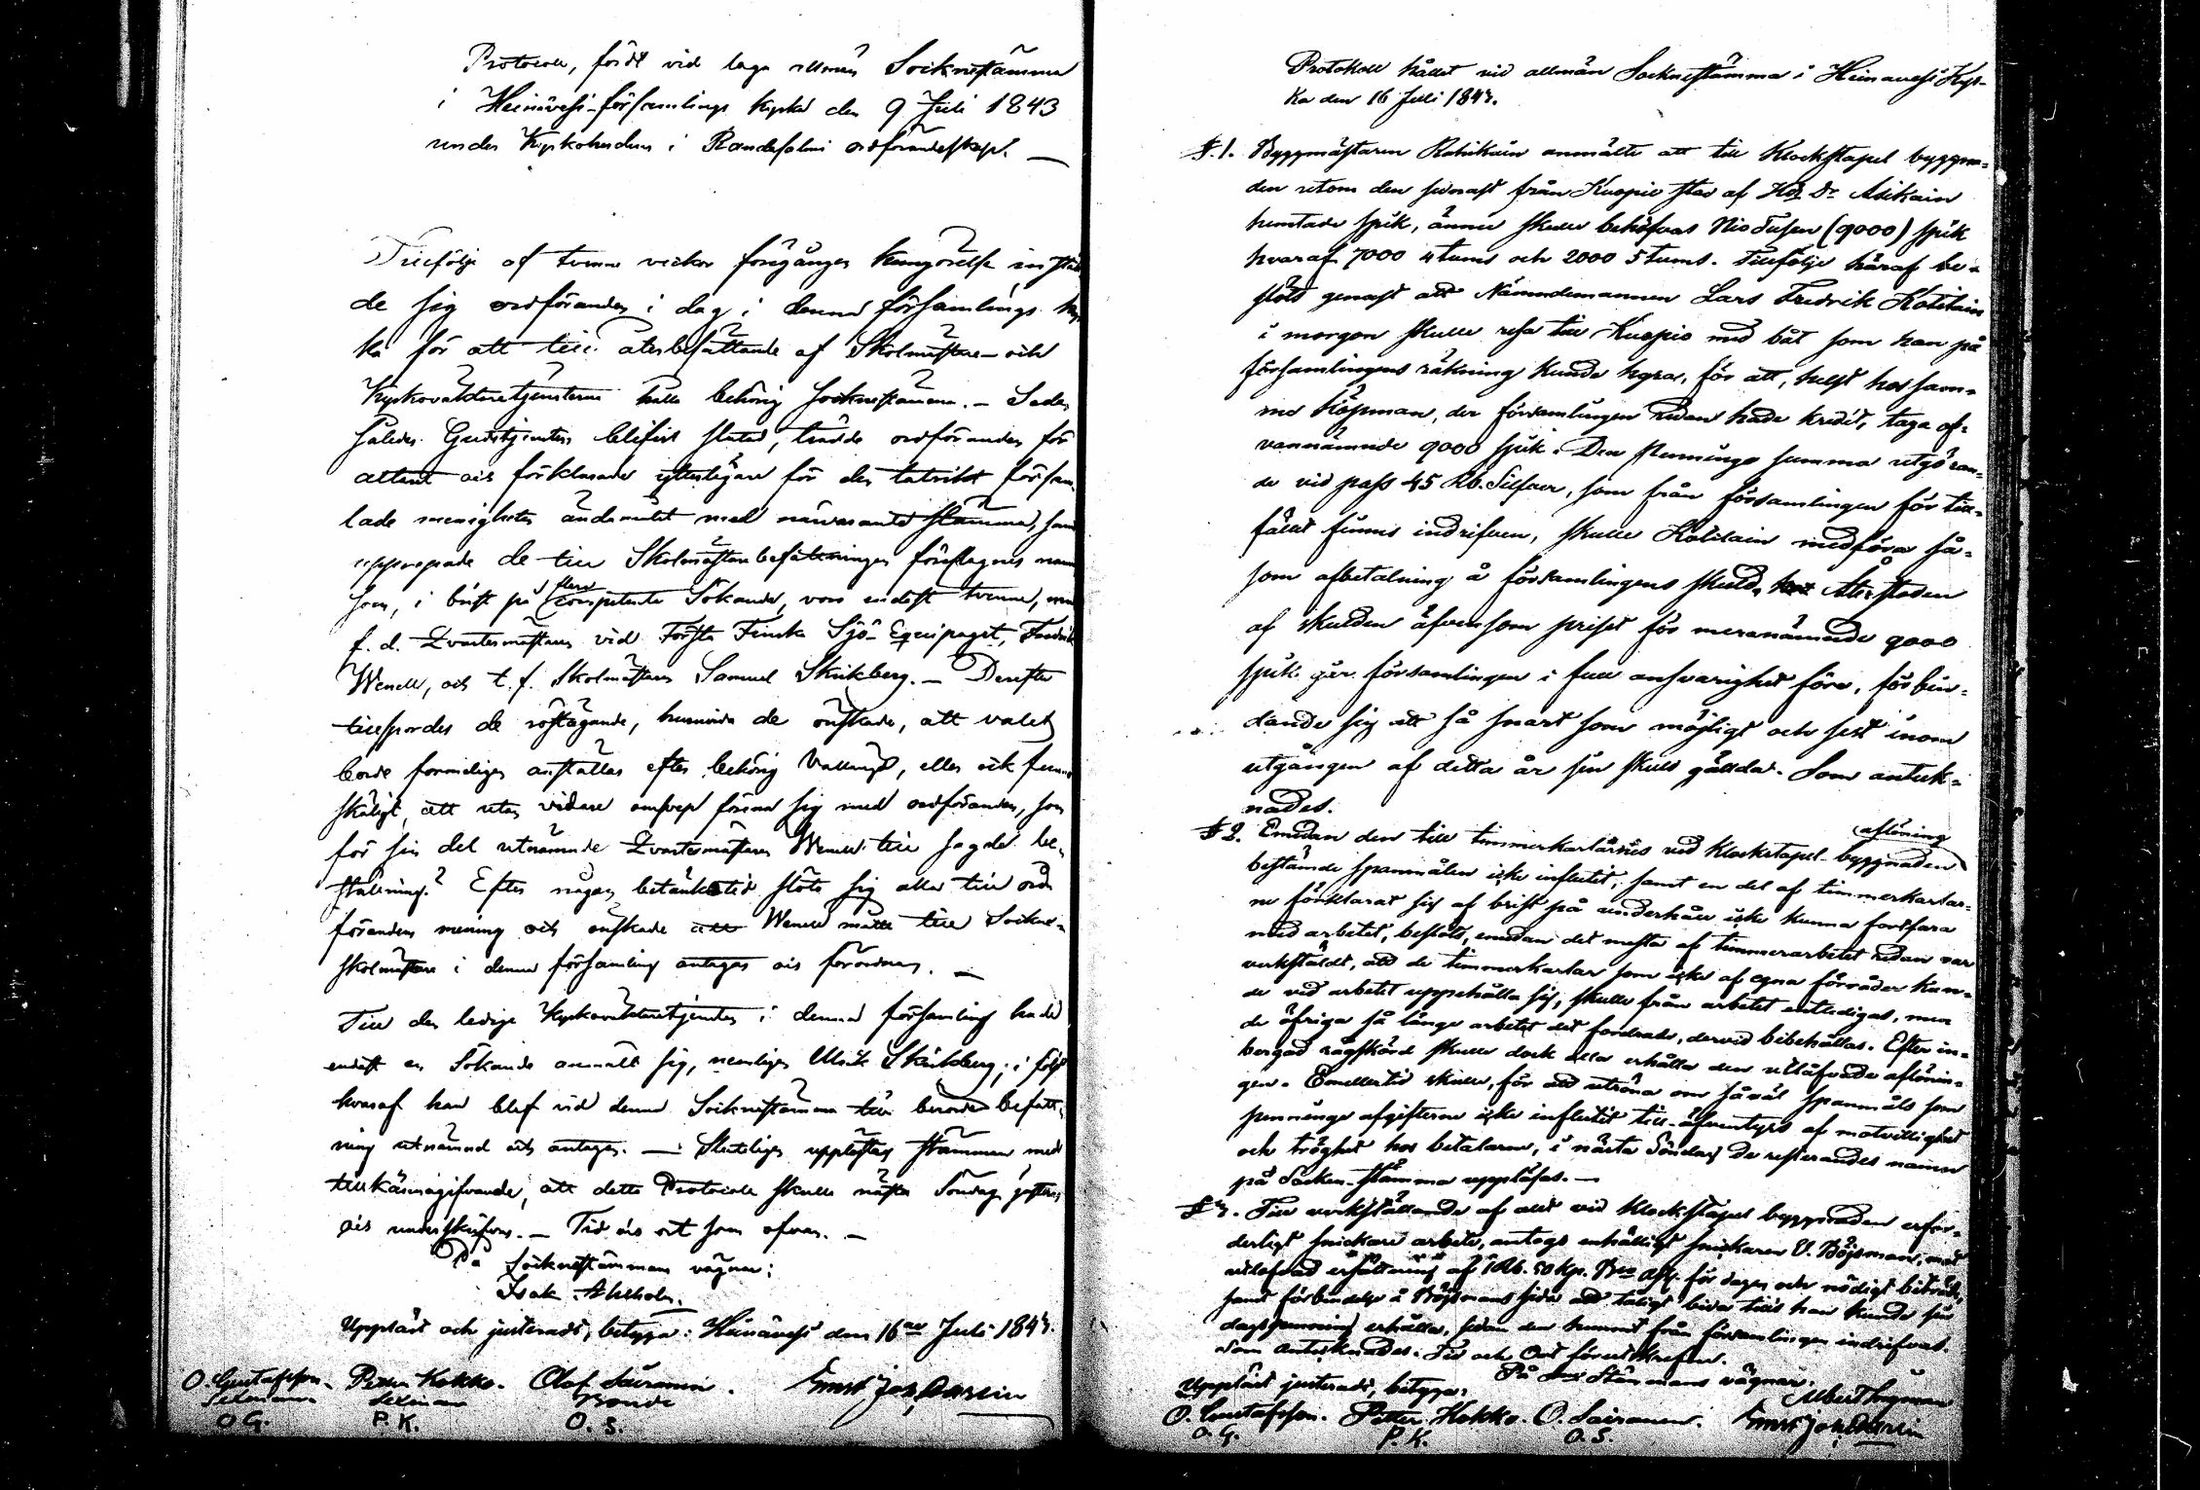 Protocoll, fördt vid laga allmän Socknestämma
i Heinävesi-församlings kyrka den 9 Juli 1843
under Kyrkoherdens i Randasalmi ordförandeskap. —
Tillfölje af tvenne veckor föregången kungörelse inställ
de sig ordföranden i dag i denna församlings kyr
ka för att till återbesättande af Skolmästare- och
Kyrkovaktaretjensterne hålla behörig Socknestämma. — Sedan
således Gudstjensten blifvit slutad, trädde ordföranden för
altaret och förklarade ytterligare för den talrikt försam
lade menigheten ändamålet med närvarande stämma, samt
upropade de till Skolmästarebefattningen föreslagnes namn
som, i brist på flera competente Sökande, voro endast tvenne, nem
f. d. Qvartermästaren vid Första Finska Sjö-Equipaget, Fredrik
Wenell, och t. f. Skolmästaren Samuel Skrikberg. — Derefter
tillspordes de röstägande, huruvida de önskade, att valet
borde formeligen anställas efter behörig vallängd, eller ock funno
skäligt, att utan vidare omsvep förena sig med ordföranden, som
för sin del utnämnde Qvartermästaren Wenell till sagde be-
ställning? Efter någon betänketid slöto sig alla till ord
förandens mening och önskade att Wenell måtte till Sockne-
skolmästare i denna församling antagas och förordnas. —
Till den lediga Kyrkovaktaretjensten i denna församling hade
endast en Sökande anmält sig, nemligen Ulrik Skrikberg; i följd
hvaraf han blef vid denna Socknestämma till berörde befatt-
ning utnämnd och antagen. — Slutligen upplöstes stämman med
tillkännagifvande, att detta Protocoll skulle nästa Söndag justeras
och underskrifvas. — Tid och ort som ofvan. —
På Socknestämmans vägnar:
Isak
Uppläst och justeradt, betyga: Heinävesi den 16de Juli 1843.
O. Gustafsson. Petter Kokko. Olof Sairanen. Ernst Joh.
Sexman Bonde
O G. P. K. O. S.
Protokoll hållet vid allmän Sockneståmma i Heinävesi Kyr-
ka den 16 Juli 1843.
§. 1. Byggmästaren Rahikain anmälte att till Klockstapel byggna-
den utom den senast från Kuopio stad af Hd Dr Asikain
hemtade spik, ännu skulle behöfvas Nio Tusen (9000) spik
hvaraf 7000 4 tums och 2000 5 tums. Tillfölje häraf be-
slöts genast att Nämndemannen Lars Fredrik Kotilain
i morgon skulle resa till Kuopio med båt som han på
församlingens räkning kunde hyra, för att, helst hos sam-
ma Köpman, der församlingen redan hade kredit, taga of-
vannämnde 9000 spik. Den Pennings summa utgöran-
de vid pass 45 Rb. Silfver, som från församlingen för till-
fället finnes indrifven, skulle Kotilain medföra så-
som afbetalning å församlingens skuld, Återstoden
af skulden äfvensom priset för meranämnde 9000
spik går församlingen i full ansvarighet före, förbin-
dande sig att så snart som möjligt och sist inom
utgången af detta år sin skuld gälda. Som anteck-
nades.
§ 2. Emedan den till timmerkarlarnes vid Klockstapel-byggnaden aflöning
bestämde spanmålen icke influtit, samt en del af timmerkarlar-
ne förklarat sig af brist på underhåll icke kunna fortfara
med arbetet, beslöts, emedan det mesta af timmerarbetet redan var
verkstäldt, att de timmerkarlar som icke af egna förråder kun-
de vid arbetet uppehålla sig, skulle från arbetet entledigas, men
de öfriga så länge arbetet det fordrade, dervid bibehållas. Efter in-
bergad rågskörd skulle dock alla erhålla den utlåfvade aflönin-
gen. Emellertid skulle, för att utröna om såväl spanmåls som
pennings afgifterne icke influtit till äfventyrs af motvillighet
och tröghet hos betalarne, i nästa Söndag De resterandes namn
på Socken-stämma uppläsas. —
§ 3. Till verkställande af allt vid Klockstapel byggnaden erfor-
derligt snickare arbete, antogs enhälligt snickaren V. Böjsman, mot
utlofvad ersättning af 1 Rb. 50 kp. Bco Ass. för dagen och nödigt biträde,
samt förbindelse å Böjsmans sida att tåligt bida tills han kunde sin
dagspenning erhålla, sedan den hunnit från församlingen indrifvas.
Som antecknades. Tid och Ort förutskrefven.
På Stämmans vägnar:
Albert Ingman
Uppläst justeradt, betyga:
O. Gustafsson. Petter Kokko. O. Sairanen. Ernst Joh.
O. G. P. K. O. S.